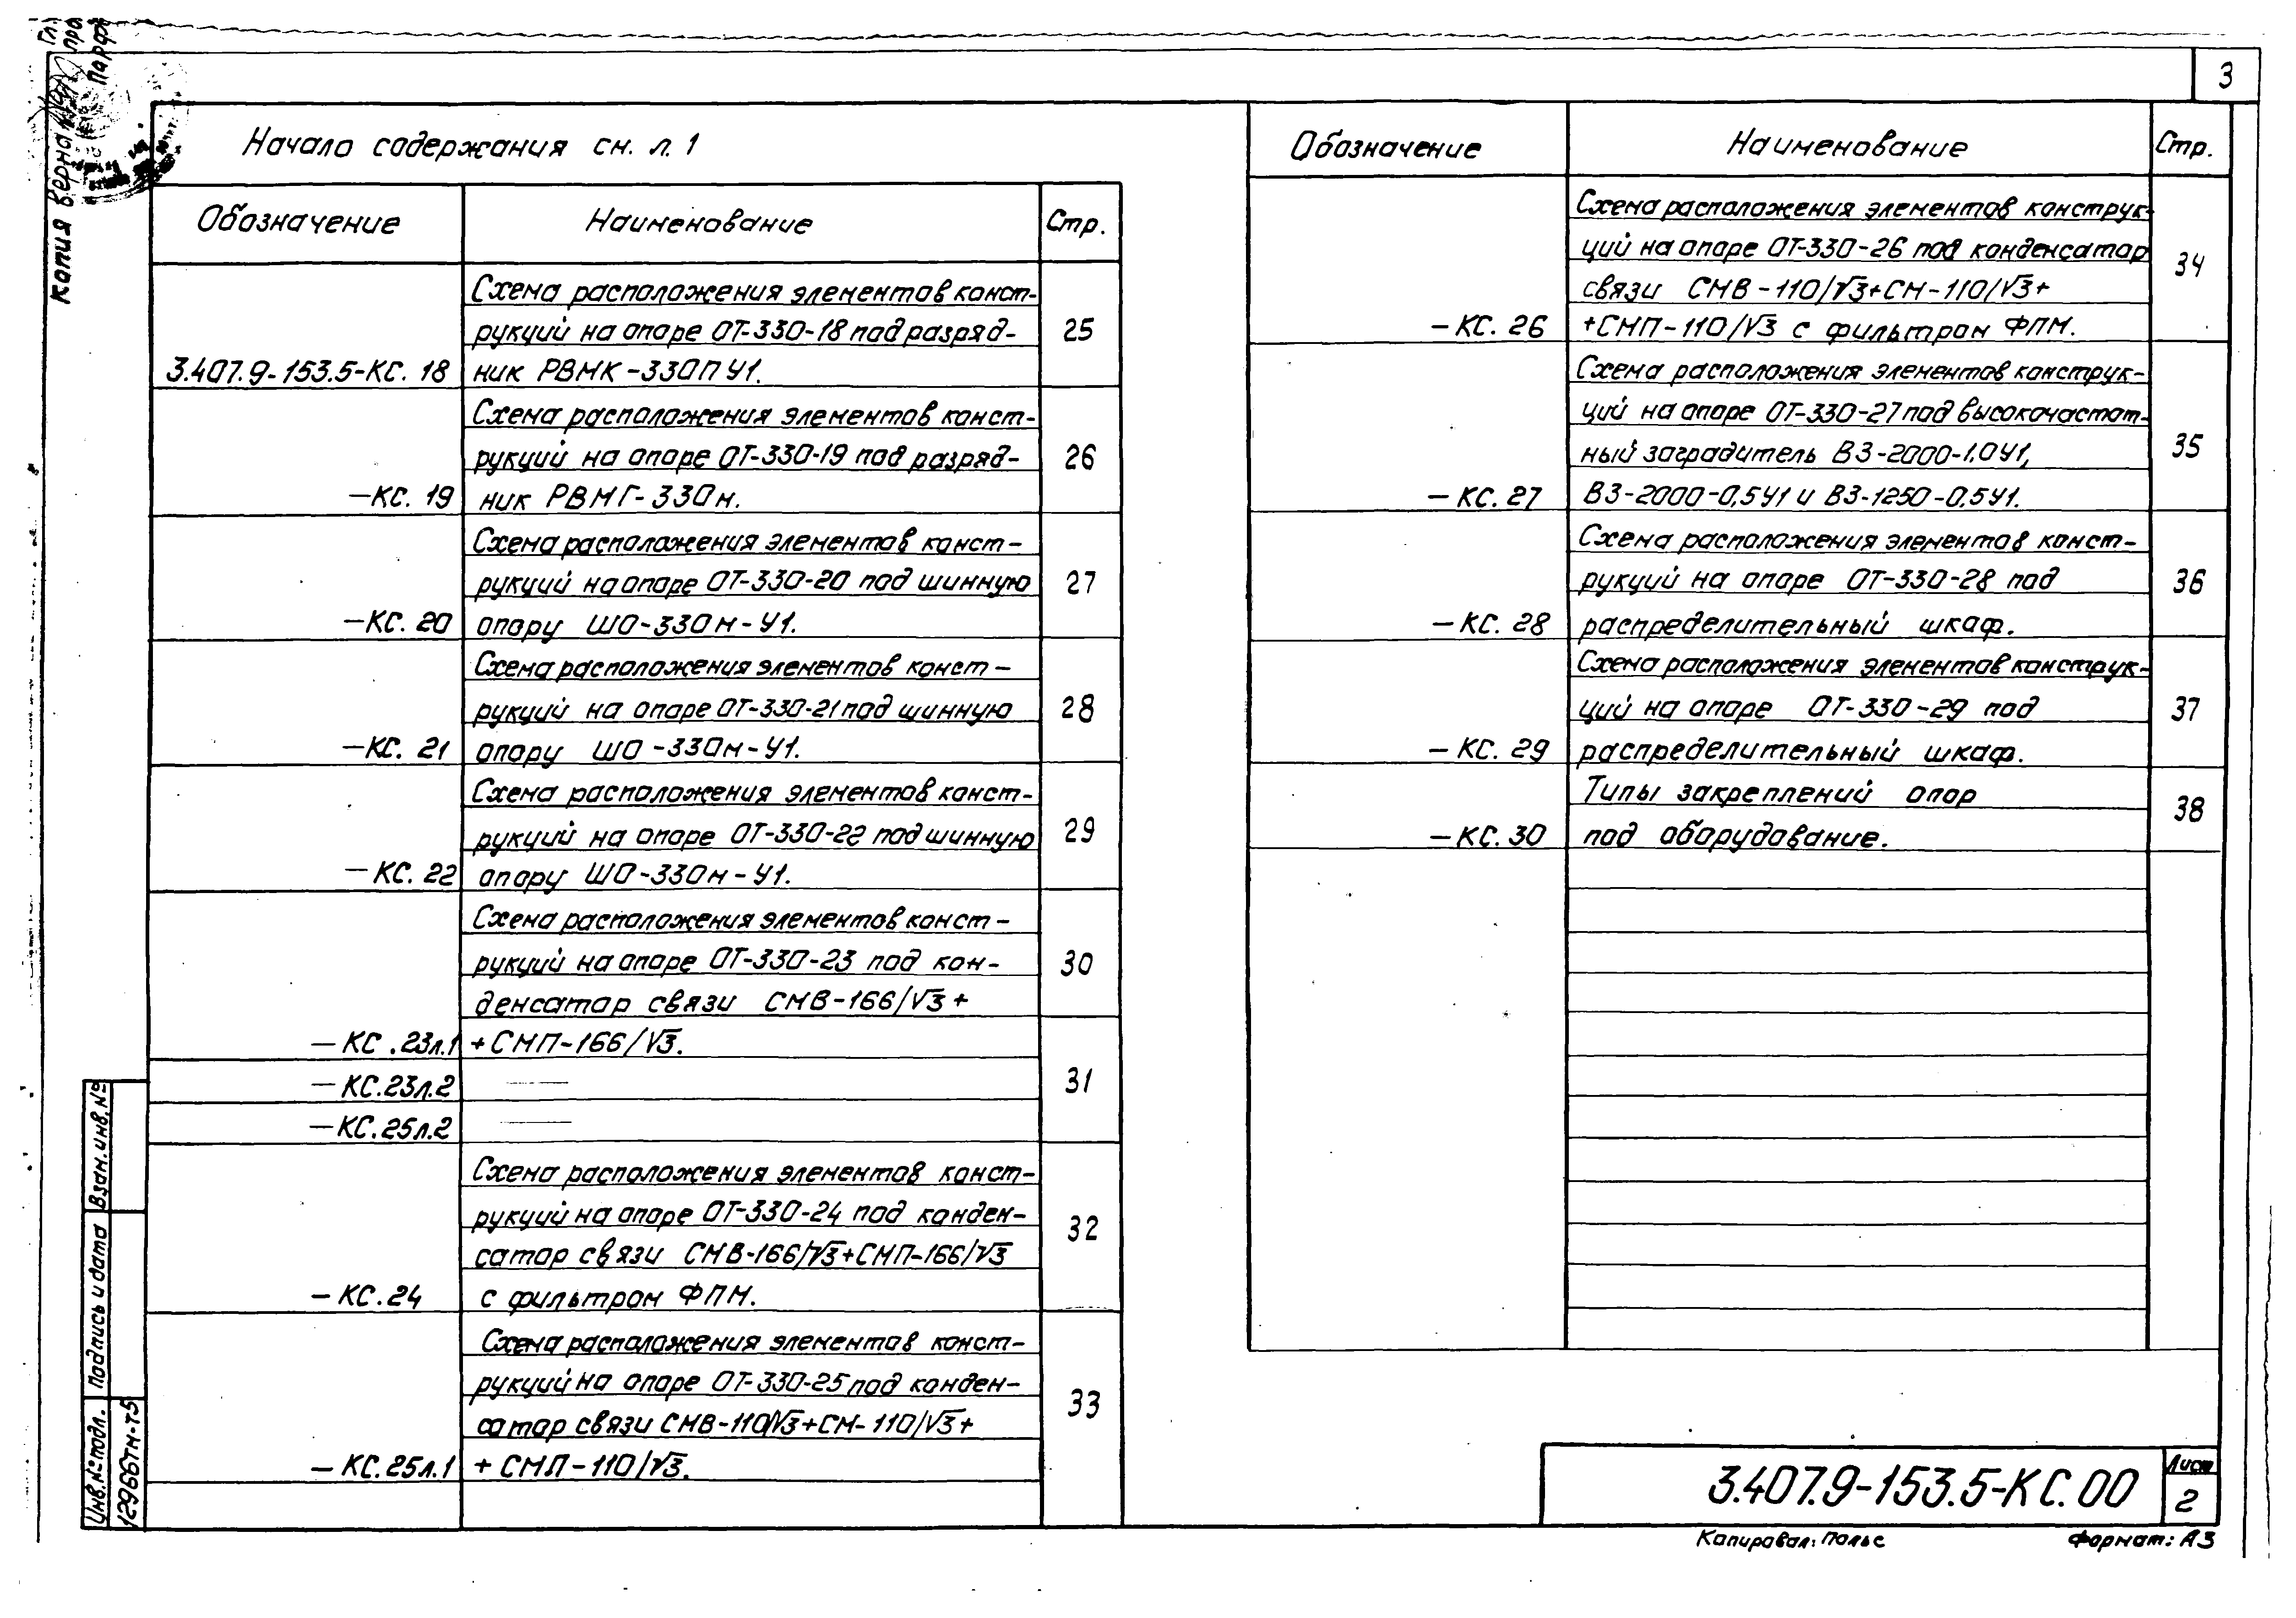 3
Копия верна
Начало содержания см. л. 1
Обозначение Наименование Стр.
Схема расположения элементов конст-
рукций на опоре ОТ-330-18 под разряд- 25
3.407.9-153.5-КС. 18 ник РВМК-330П У1.
Схема расположения элементов конст-
рукций на опоре ОТ-330-19 под разряд- 26
-КС. 19 ник РВМГ-330м.
Схема расположения элементов конст-
рукций на опоре ОТ-330-20 под шинную 27
-КС. 20 опору ШО-330м-У1.
Схема расположения элементов конст-
рукций на опоре ОТ-330-21 под шинную 28
-КС. 21 опору ШО-330м-У1.
Схема расположения элементов конст-
рукций на опоре ОТ-330-22 под шинную 29
-КС. 22 опору ШО-330м-У1.
Схема расположения элементов конст-
рукций на опоре ОТ-330-23 под кон- 30
денсатор связи СМВ-166/√3+
-КС.23л.1 +СМП-166/√3.
-КС.23л.2 — 31
-КС.25л.2 —
Схема расположения элементов конст-
рукций на опоре ОТ-330-24 под конден- 32
сатор связи СМВ-166/√3+СМП-166/√3
-КС.24 с фильтром ФПМ.
Схема расположения элементов конст-
рукций на опоре ОТ-330-25 под конден- 33
сатор связи СМВ-110/√3+СМ-110/√3+
-КС.25л.1 +СМП-110/√3.
Обозначение Наименование Стр.
Схема расположения элементов конструк-
ций на опоре ОТ-330-26 под конденсатор 34
связи СМВ-110/√3+СМ-110/√3+
-КС. 26 +СМП-110/√3 с фильтром ФПМ.
Схема расположения элементов конструк-
ций на опоре ОТ-330-27 под высокочастот-
ный заградитель ВЗ-2000-1.0У1, 35
-КС. 27 ВЗ-2000-0,5У1 и ВЗ-1250-0,5У1.
Схема расположения элементов конст-
рукций на опоре ОТ-330-28 под 36
-КС. 28 распределительный шкаф.
Схема расположения элементов конструк-
ций на опоре ОТ-330-29 под 37
-КС. 29 распределительный шкаф.
Типы закреплений опор 38
-КС. 30 под оборудование.
Взам.инв.№
Подпись и дата
Инв.№подл.
12966тм-т5
3.407.9-153.5-КС.00
Лист
2
Копировал: Польс Формат: А3